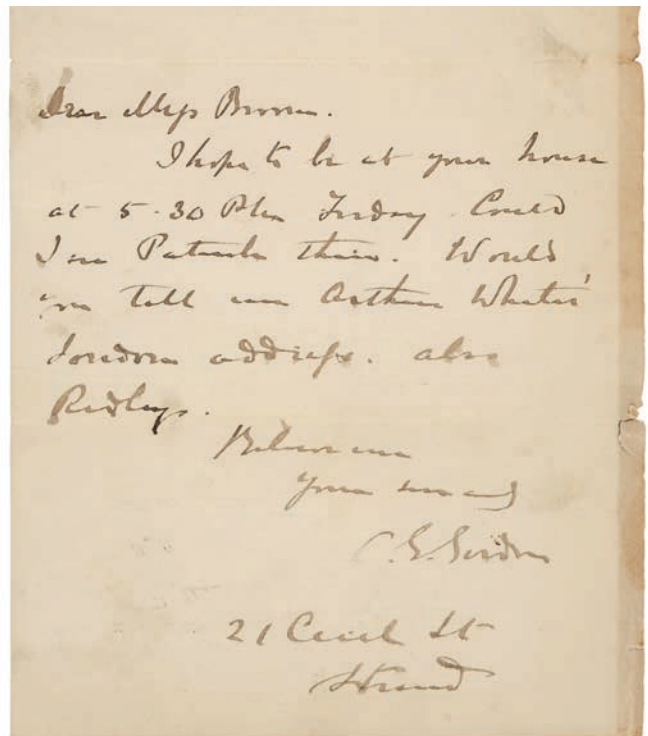 Dear Miss Brown.
I hope to be at your house
at 5.30 PM Friday Could
I see there. Would
you tell me Arthur White's
London address. also
Ridleys.
Believe me
Yours sincerely
C. G. Gordon
21 Cecil St
Strand